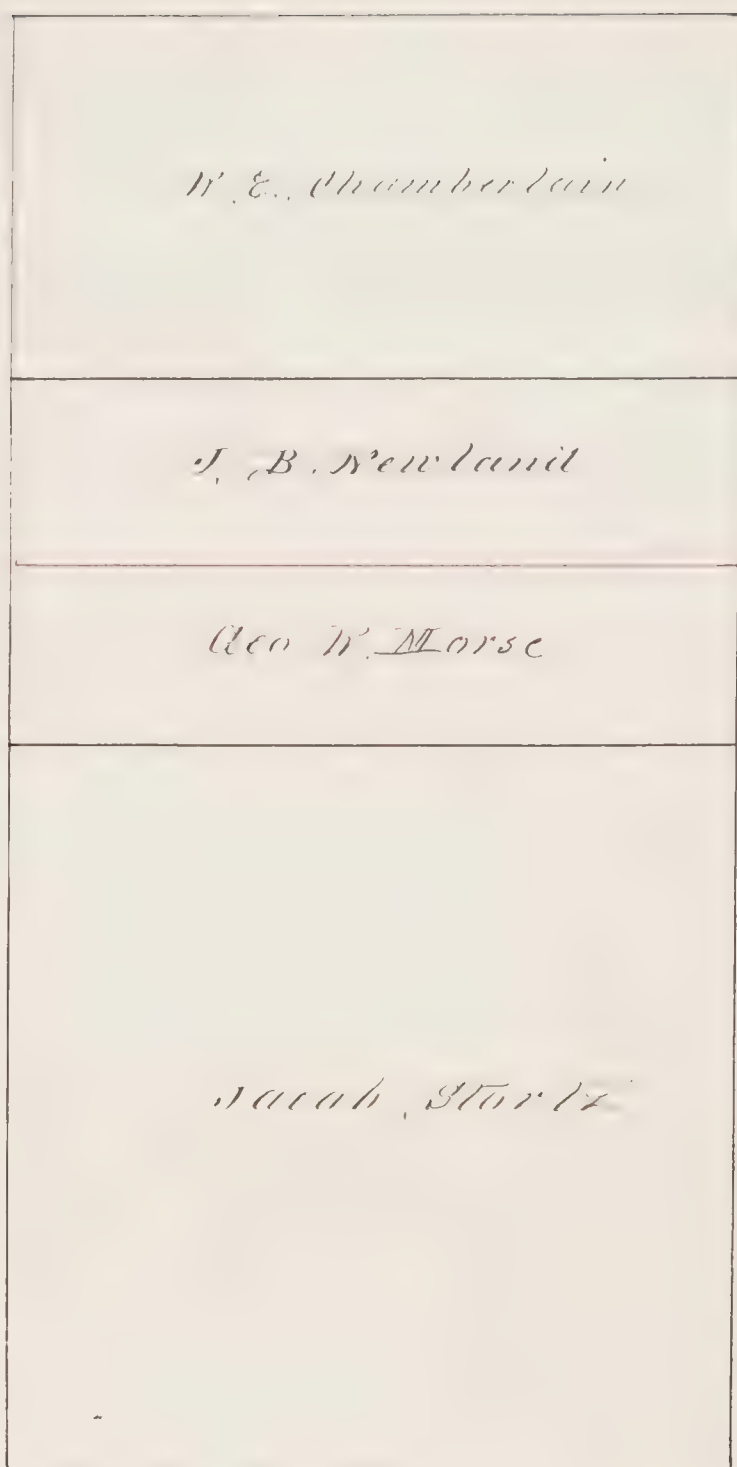 W. E. Chamberlain
J. B. Newland
Geo W. Morse
Jacob Startz